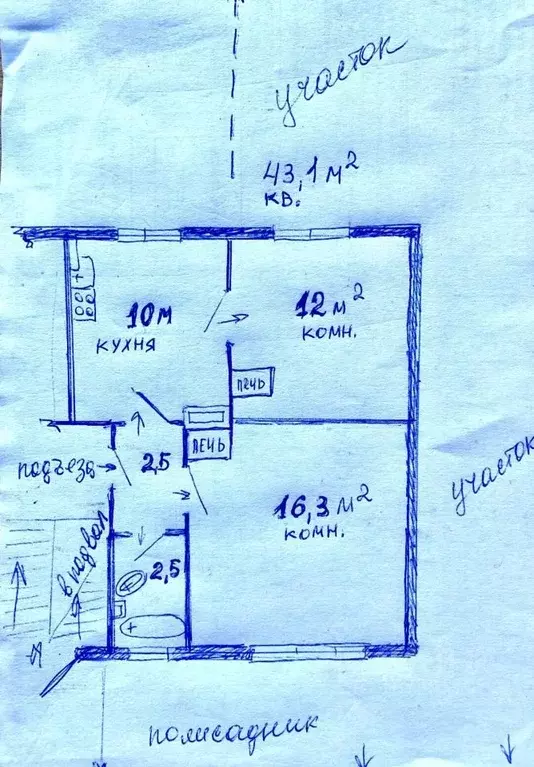 участок
43,1 м²
кв.
10м
кухня
12 м²
комн.
печь
печь
подъезд
2,5
16,3 м²
комн.
участок
в подвал
2,5
полисадник